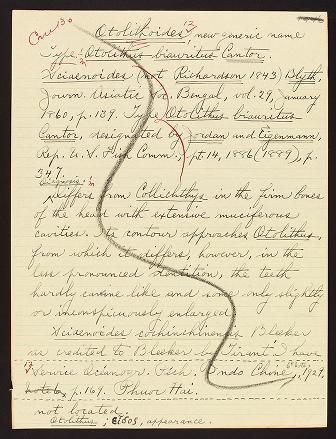 Otolithoides, new generic name
Type: Otolithus biauritus Cantor.
Sciaenoides (not Richardson 1843) Blyth,
Journ. Asiatic Soc. Bengal, vol. 29, January
1860, p. 139. Type Otolithus biauritus
Cantor, designated by Jordan and Eigenmann,
Rep. U. S. Fish Comm., pt. 14, 1886 (1889), p.
347.
Diagnosis:
Differs from Collichthys in the firm bones
of the head with extensive muciferous
cavities. The contour approaches Otolithus,
from which it differs, however, in the
less pronounced dentition, the teeth
hardly canine like and some only slightly
or inconspicuously enlarged
Sciaenoides cochinchinensis Bleeker
as credited to Bleeker by Tirant I have
Service Oceanogr. Pech. Indo Chine, 6e note, 1929,
p. 169. Thuoc Hai.
not located.
Otolithus; ειδος, appearance.